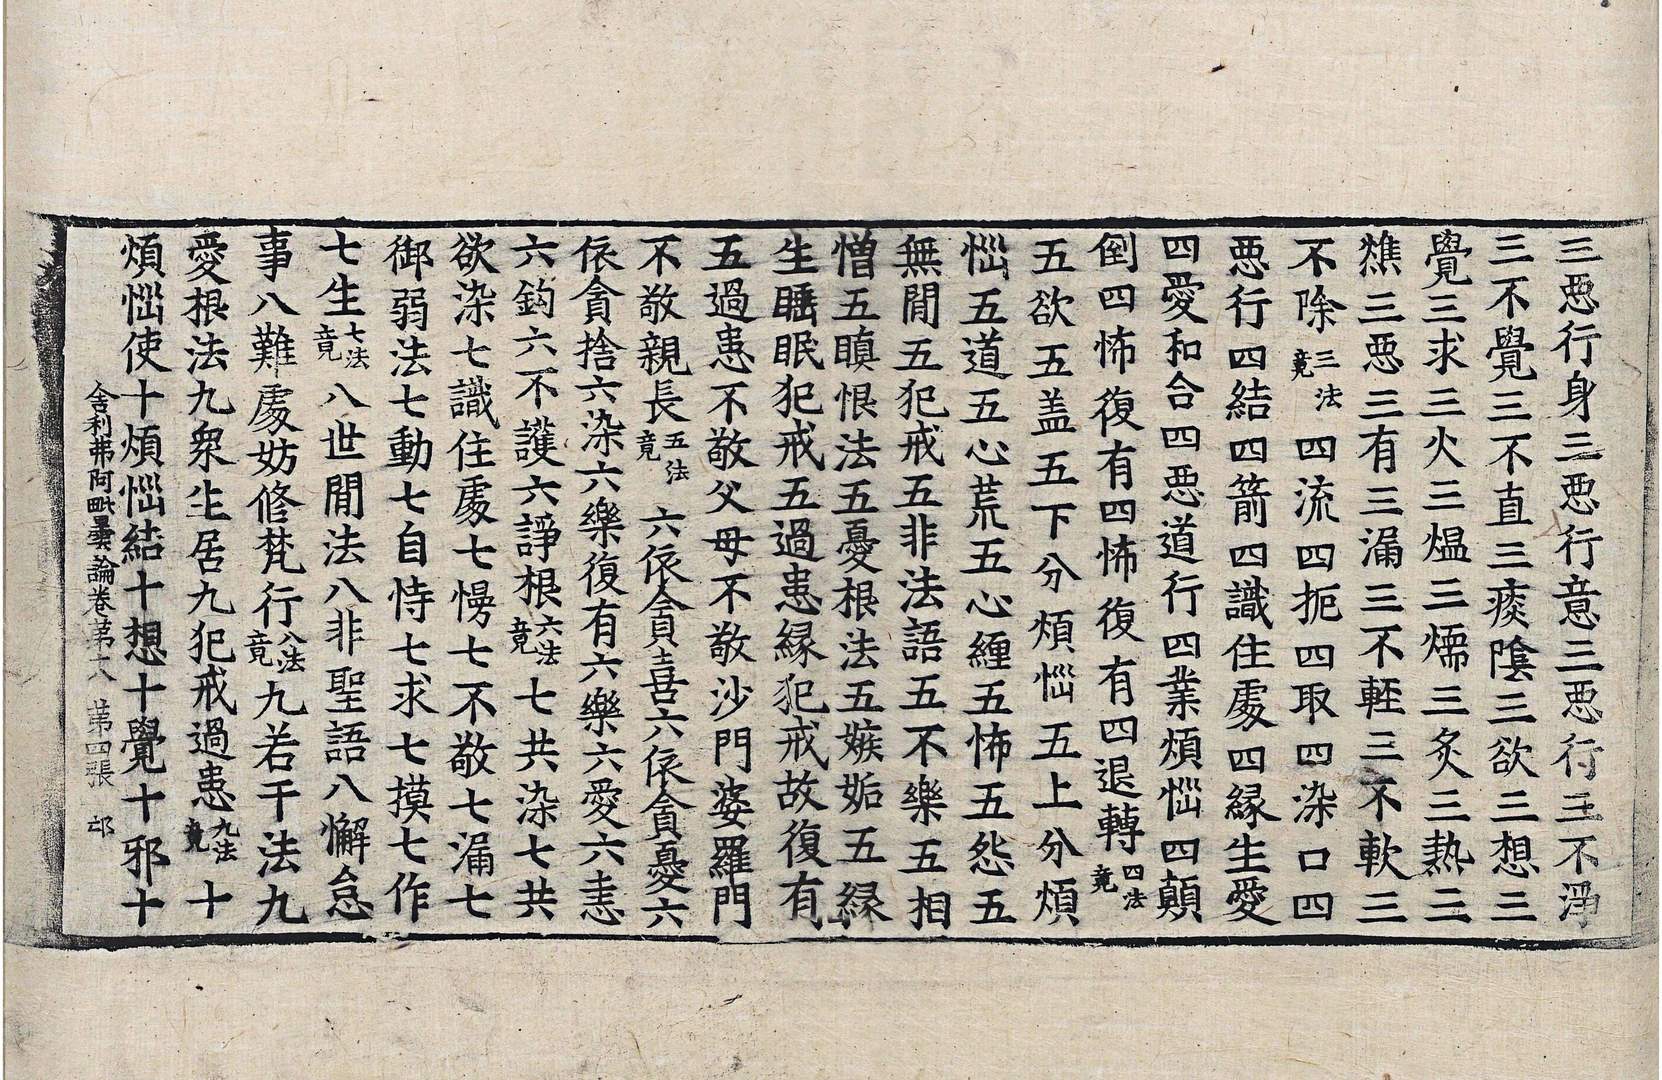 三惡行身三惡行意三惡行三不淨
三不覺三不直三痰陰三欲三想三
覺三求三火三熅三㷸三炙三熱三
燋三惡三有三漏三不輕三不軟三
不除三法竟四流四扼四取四染口四
惡行四結四箭四識住處四緣生愛
四愛和合四惡道行四業煩惱四顛
倒四怖復有四怖復有四退轉四法竟
五欲五盖五下分煩惱五上分煩
惱五道五心荒五心纏五怖五怨五
無閒五犯戒五非法語五不樂五相
憎五瞋恨法五憂根法五嫉妬五緣
生睡眠犯戒五過患緣犯戒故復有
五過患不敬父母不敬沙門婆羅門
不敬親長五法竟六依貪喜六依貪憂六
依貪捨六染六樂復有六樂六愛六恚
六鈎六不護六諍根六法竟七共染七共
欲染七識住處七慢七不敬七漏七
御弱法七動七自恃七求七摸七作
七生七法竟八世閒法八非聖語八懈怠
事八難處妨修梵行八法竟九若干法九
愛根法九衆生居九犯戒過患九法竟十
煩惱使十煩惱結十想十覺十邪十
舍利弗阿毗曇論卷第六 第四張